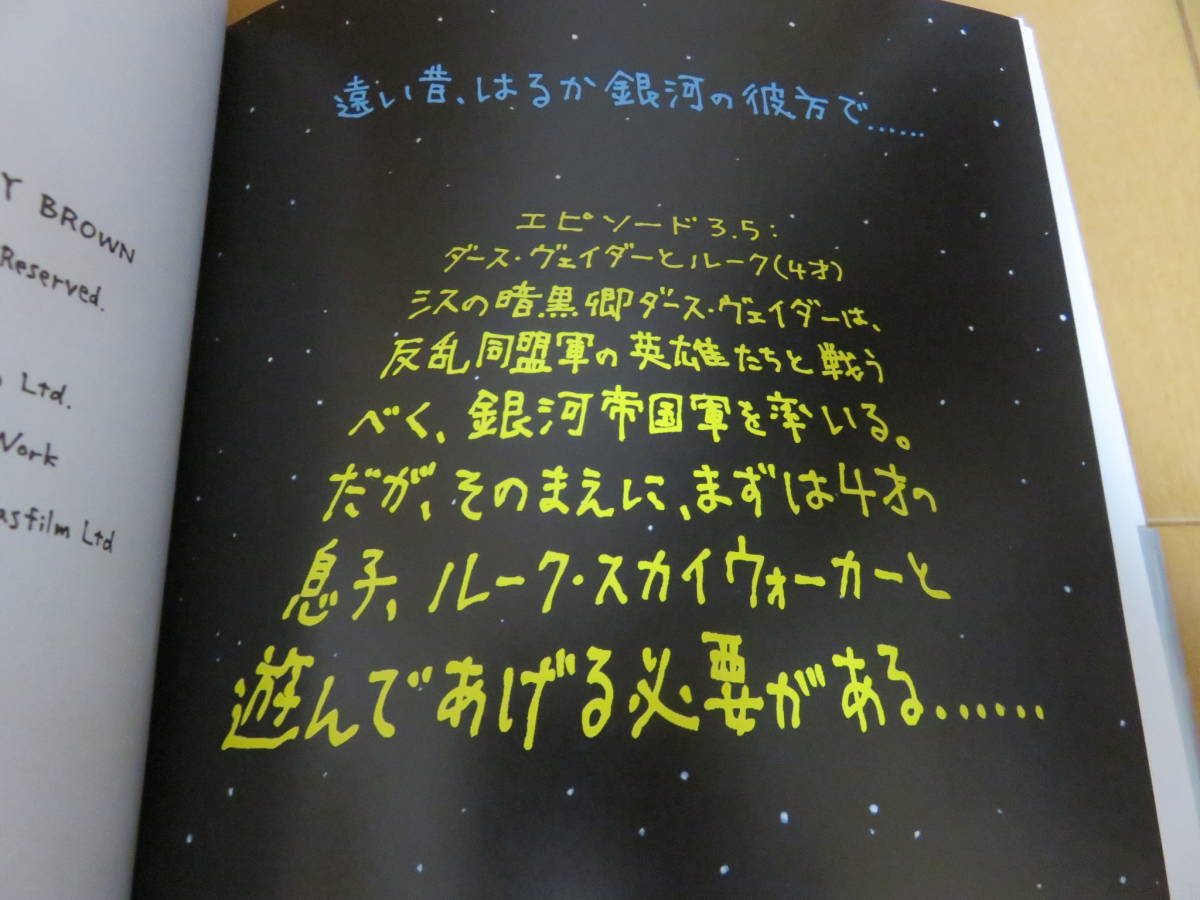 Y BROWN
Reserved.
Ltd.
Work
asfilm Ltd
遠い昔、はるか銀河の彼方で……
エピソード3.5:
ダース・ヴェイダーとルーク(4才)
シスの暗黒卿ダース・ヴェイダーは、
反乱同盟軍の英雄たちと戦う
べく、銀河帝国軍を率いる。
だが、そのまえに、まずは4才の
息子、ルーク・スカイウォーカーと
遊んであげる必要がある……